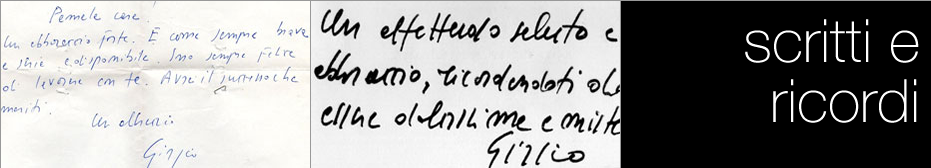 Pamela cara!
Un abbraccio forte. E come sempre brava
e seria e disponibile. Sono sempre felice
di lavorare con te. Avrai il successo che
meriti.
Un abbraccio
Giorgio
Un affettuoso saluto e
abbraccio, ricordandoti
e
Giorgio
scritti e
ricordi